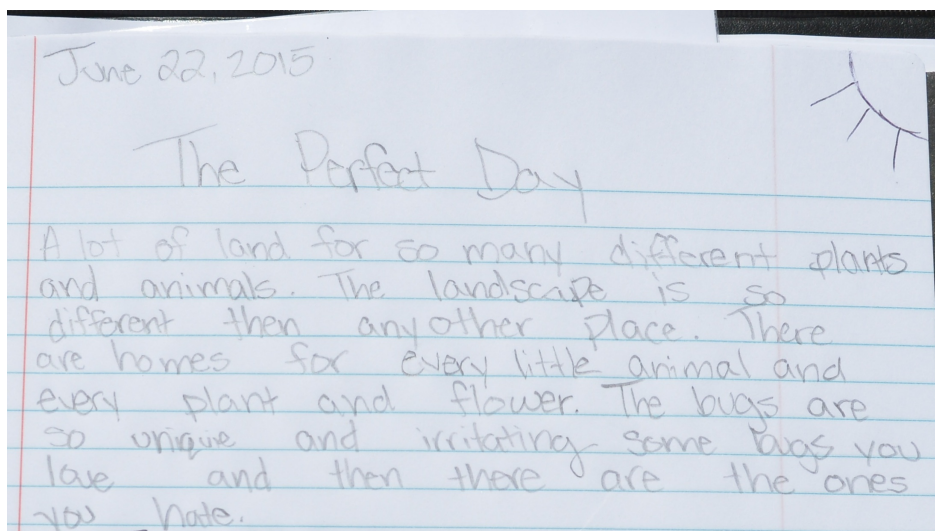 June 22, 2015
The Perfect Day
A lot of land for so many different plants
and animals. The landscape is so
different then any other place. There
are homes for every little animal and
every plant and flower. The bugs are
so unique and irritating some bugs you
love and then there are the ones
you hate.